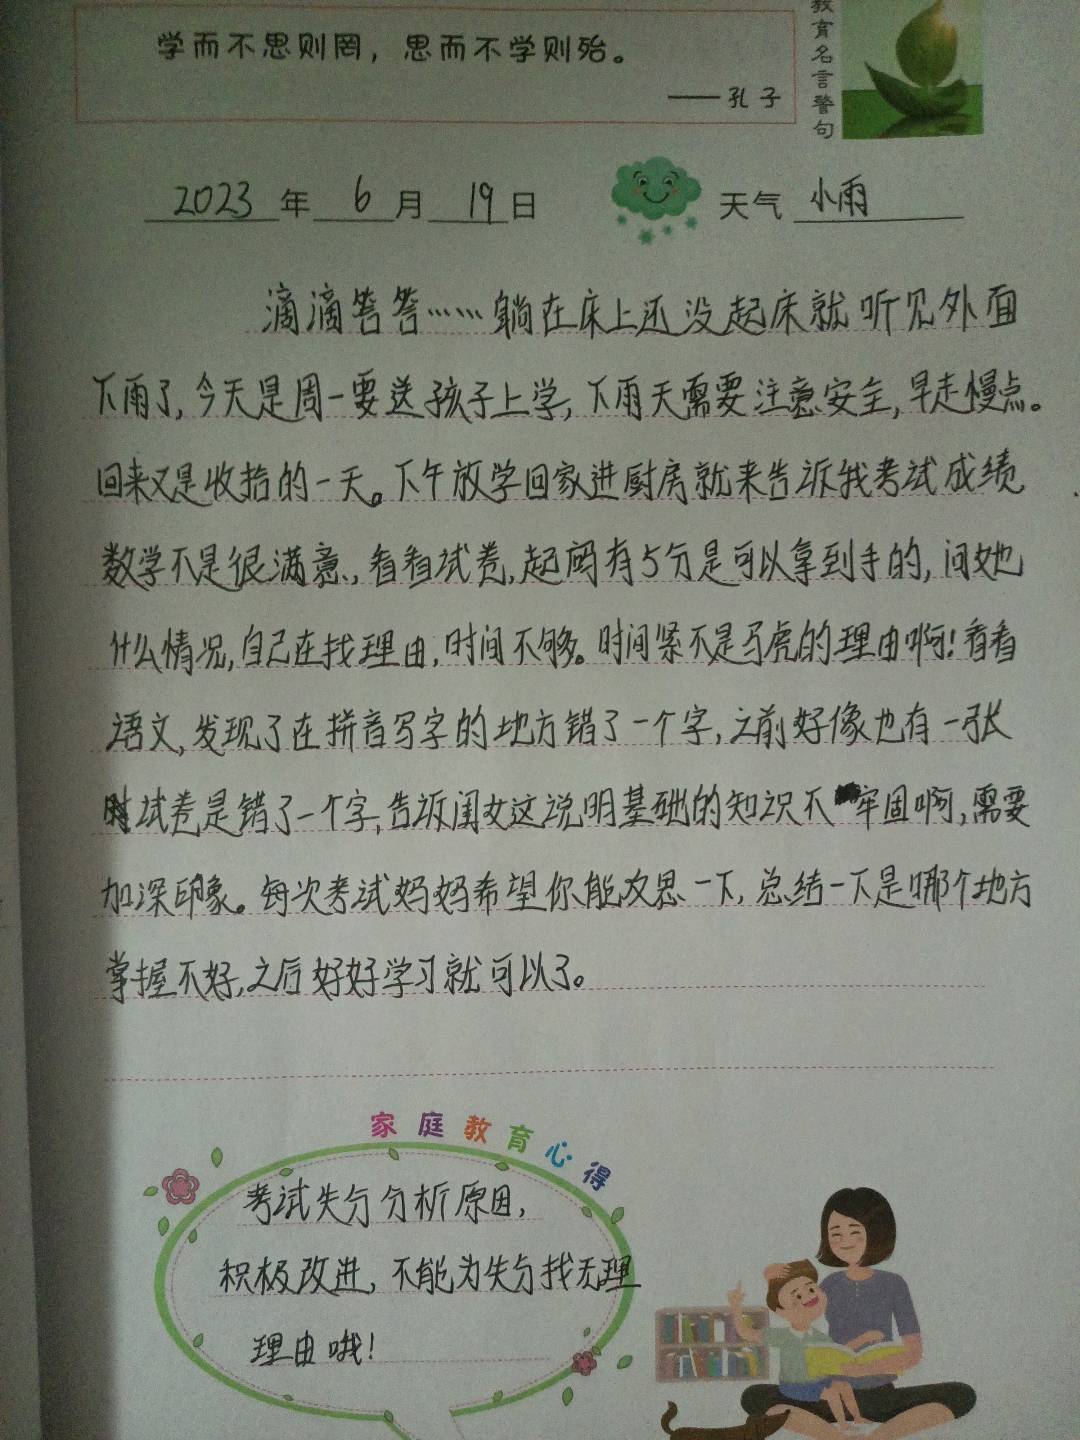 学而不思则罔，思而不学则殆。
——孔子
教育名言警句
2023年6月19日 天气 小雨
滴滴答答……躺在床上还没起床就听见外面
下雨了,今天是周一要送孩子上学,下雨天需要注意安全,早走慢点。
回来又是收拾的一天。下午放学回家进厨房就来告诉我考试成绩
数学不是很满意,看看试卷,起码有5分是可以拿到手的,问她
什么情况,自己在找理由,时间不够。时间紧不是马虎的理由啊!看看
语文,发现了在拼音写字的地方错了一个字,之前好像也有一张
试卷是错了一个字,告诉闺女这说明基础的知识不牢固啊,需要
加深印象。每次考试妈妈希望你能反思一下,总结一下是哪个地方
掌握不好,之后好好学习就可以了。
家庭教育心得
考试失分分析原因,
积极改进,不能为失分找无理
理由哦!